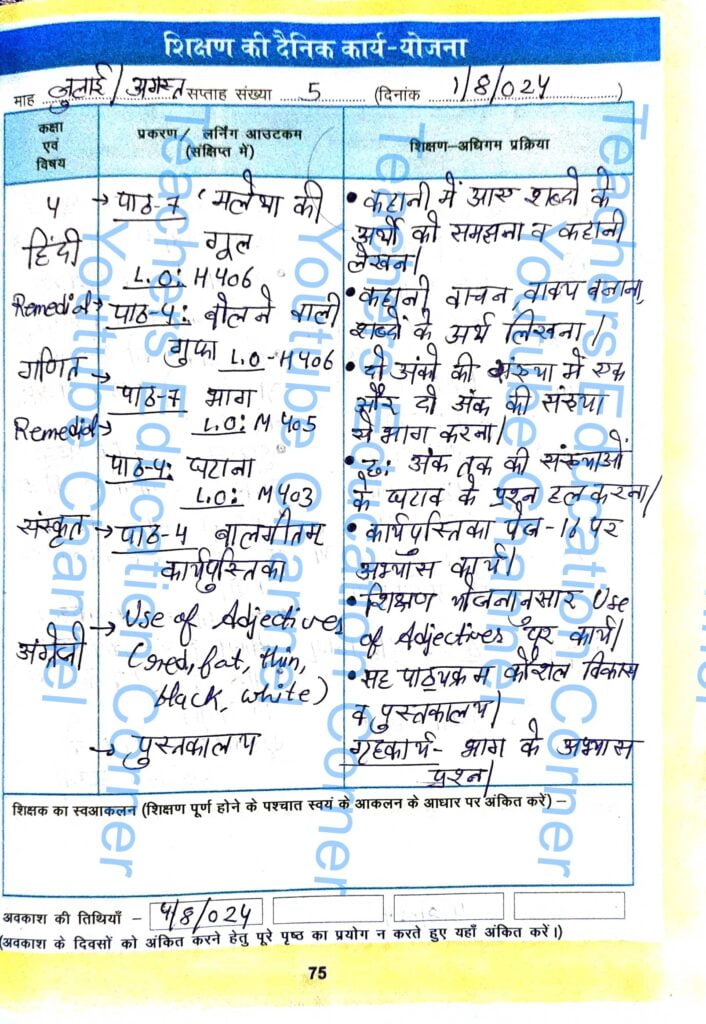 शिक्षण की दैनिक कार्य-योजना
माह जुलाई/अगस्त सप्ताह संख्या 5 (दिनांक 1/8/024)
कक्षा एवं विषय
प्रकरण / लर्निंग आउटकम (संक्षिप्त में)
शिक्षण-अधिगम प्रक्रिया
५ → पाठ-7 'मलेथा की
• कहानी में आए शब्दों के
हिंदी गूल
अर्थो को समझना व कहानी
L.O: H406
लेखन।
Remedial → पाठ-4: बोलने वाली
• कहानी वाचन, वाक्य बनाना,
गुफा L.O-H406
शब्दों के अर्थ लिखना।
गणित
• दो अंको की संख्या में एक
पाठ-7 भाग
और दो अंक की संख्या
Remedial → L.O: M405
से भाग करना।
पाठ-4: घटाना
• छ: अंक तक की संख्याओं
L.O: M403
के घटाव के प्रश्न हल करना।
संस्कृत → पाठ-4 बालगीतम्
• कार्यपुस्तिका पेज-16 पर
कार्यपुस्तिका
अभ्यास कार्य।
→ Use of Adjectives
• शिक्षण योजनानुसार Use
अंग्रेजी (red, fat, thin,
of Adjectives पर कार्य।
black, white)
• सह पाठ्यक्रम कौशल विकास
व पुस्तकालय।
→ पुस्तकालय
गृहकार्य- भाग के अभ्यास
प्रश्न।
शिक्षक का स्वआकलन (शिक्षण पूर्ण होने के पश्चात स्वयं के आकलन के आधार पर अंकित करें) –
अवकाश की तिथियाँ – 4/8/024
(अवकाश के दिवसों को अंकित करने हेतु पूरे पृष्ठ का प्रयोग न करते हुए यहाँ अंकित करें।)
75
Teachers Education Corner
Youtube Channel
Teachers Education Corner
Youtube Channel
Teachers Education Corner